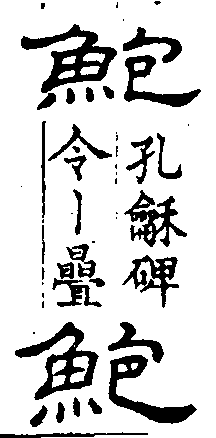 鮑
孔龢碑
令丨曡
鮑